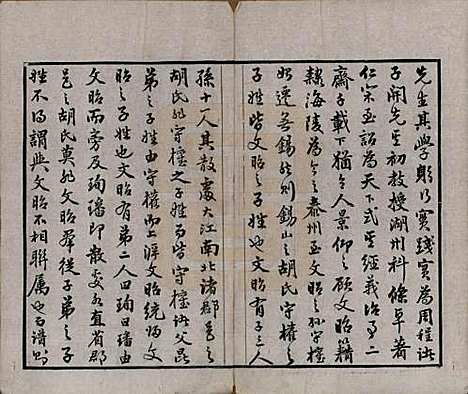 先生其學躬行實踐實爲周程诸
子開先其初教授湖州科條草著
仁宗至詔爲天下式其經義治事二
齋千載下猶令人景仰之顧文昭籍
隸海陵爲今之泰州至文昭之孫守權
始遷無錫然則錫山之胡氏守權之
子姓皆文昭之子姓也文昭有子三人
孫十人其散處大江南北諸郡邑之
胡氏非守權之子姓而皆守權诸父昆
弟之子姓也由守權而上溯文昭統歸文
昭之子姓也文昭有弟二人曰珣曰璠由
文昭而旁及珣璠即散處於直省郡
邑之胡氏莫非文昭羣從子弟之子
姓不得謂與文昭不相聯屬也者譜則